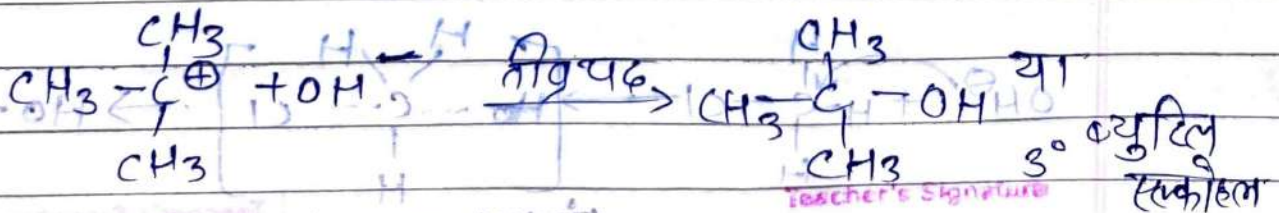 CH3
CH3-C⊕ + OH⁻ तीव्र पद → CH3-C-OH या
CH3
CH3
CH3 3° ब्युटिल
एल्कोहल
Teacher's Signature